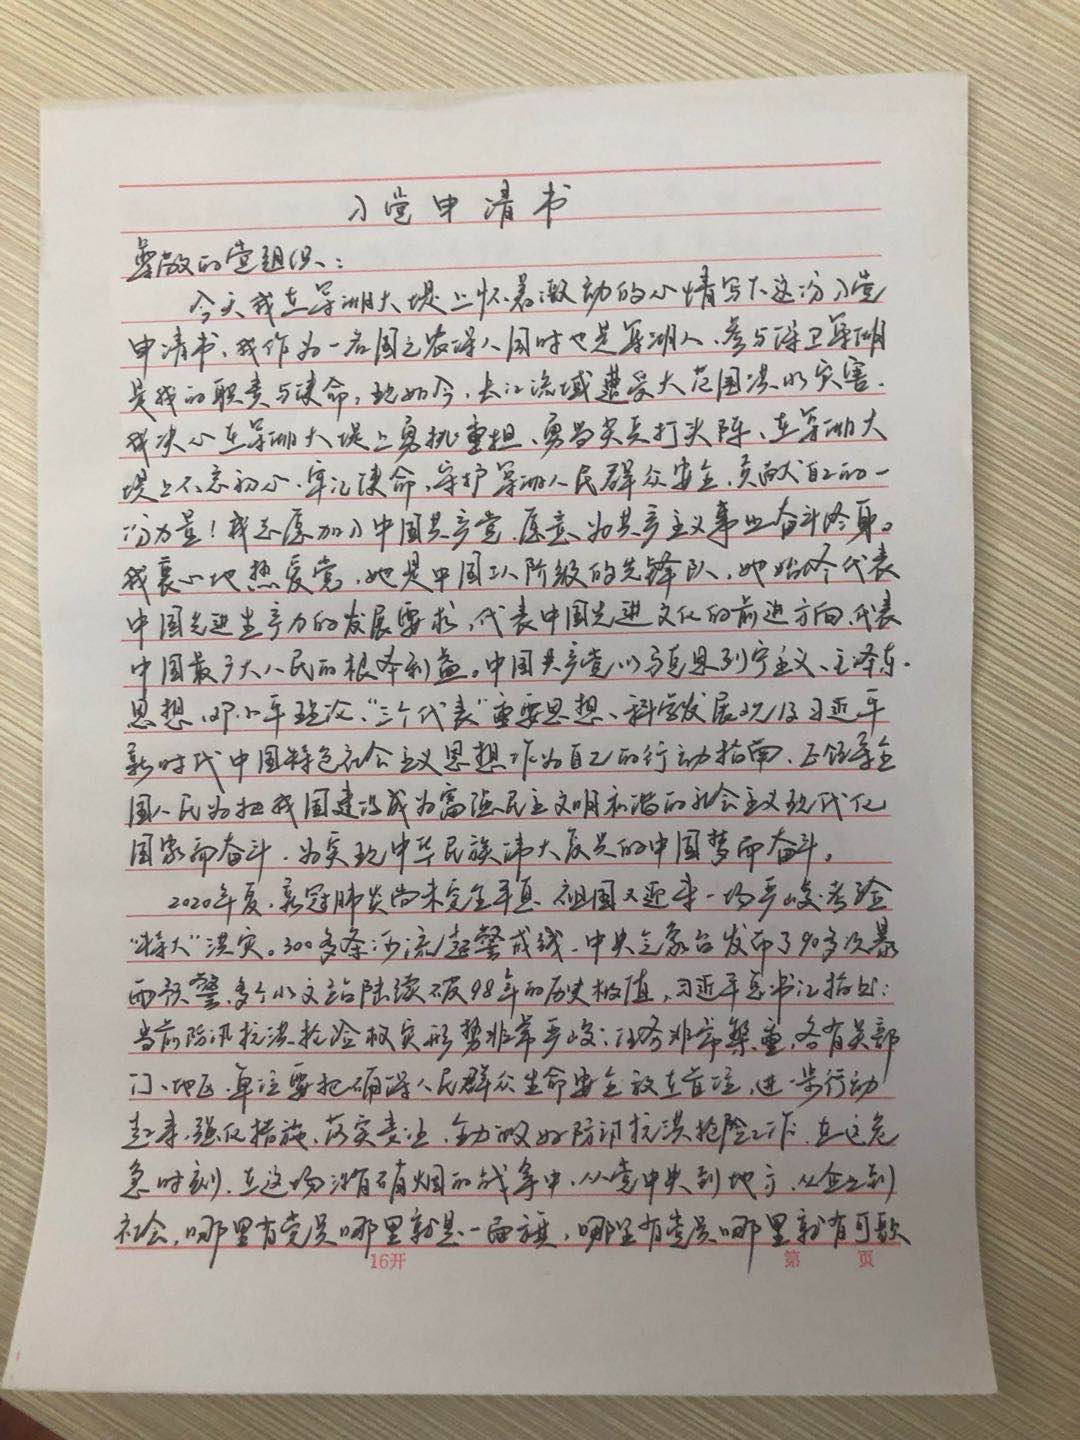 入党申请书
尊敬的党组织：
今天我在军洲大堤上怀着激动的心情写下这份入党
申请书、我作为一名国元农保人同时也是军湖人、参与保卫军湖
是我的职责与使命，现如今，长江流域遭受大范围洪水灾害.
我决心在军洲大堤上勇挑重担、勇当尖兵打头阵、在军洲大
堤上不忘初心、牢记使命，守护军洲人民群众安全，贡献自己的一
份力量！我志愿加入中国共产党，愿意为共产主义事业奋斗终身。
我衷心地热爱党，她是中国工人阶级的先锋队，她始终代表
中国先进生产力的发展要求，代表中国先进文化的前进方向、代表
中国最广大人民的根本利益。中国共产党以马克思列宁主义、毛泽东
思想、邓小平理论、“三个代表”重要思想、科学发展观及习近平
新时代中国特色社会主义思想作为自己的行动指南，正领导全
国人民为把我国建设成为富强民主文明和谐的社会主义现代化
国家而奋斗，为实现中华民族伟大复兴的中国梦而奋斗。
2020年夏，新冠肺炎尚未完全平息，祖国又迎来一场严峻考验
“特大”洪灾。300多条河流超警戒线，中央气象台发布了90多次暴
雨预警，多个水文站陆续破98年的历史极值，习近平总书记指出：
当前防汛抗洪抢险救灾形势非常严峻；任务非常繁重，各有关部
门、地区、单位要把确保人民群众生命安全放在首位，进一步行动
起来，强化措施、落实责任，全力做好防汛抗洪抢险工作，在这危
急时刻，在这场没有硝烟的战争中，从党中央到地方，从企业到
社会，哪里有党员哪里就是一面旗，哪里有党员哪里就有可歌
16开
第 页